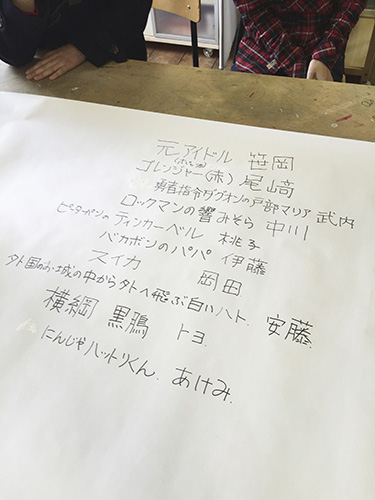 元アイドル 笹岡
ゴレンジャー(赤) 尾﨑
勇者指令ダグオンの戸部マリア 武内
ロックマンの響みそら 中川
ピーターパンのティンカーベル 桃子
バカボンのパパ 伊藤
スイカ 岡田
外国のお城の中から外へ飛ぶ白いハト. 安藤.
横綱 黒鵬 トヨ.
にんじゃハットリくん. あけみ.